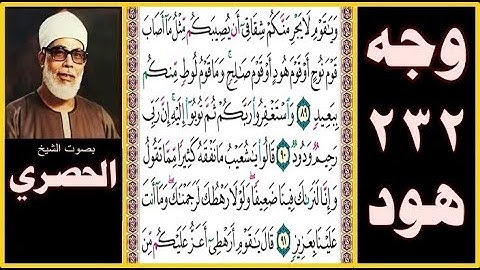 وجه
٢٣٢
هود
وَيَٰقَوْمِ لَا يَجْرِمَنَّكُمْ شِقَاقِىٓ أَن يُصِيبَكُم مِّثْلُ مَآ أَصَابَ
قَوْمَ نُوحٍ أَوْ قَوْمَ هُودٍ أَوْ قَوْمَ صَٰلِحٍ ۚ وَمَا قَوْمُ لُوطٍ مِّنكُم
بِبَعِيدٍ ٨٩ وَٱسْتَغْفِرُوا۟ رَبَّكُمْ ثُمَّ تُوبُوٓا۟ إِلَيْهِ ۚ إِنَّ رَبِّى
رَحِيمٌ وَدُودٌ ٩٠ قَالُوا۟ يَٰشُعَيْبُ مَا نَفْقَهُ كَثِيرًا مِّمَّا تَقُولُ
وَإِنَّا لَنَرَىٰكَ فِينَا ضَعِيفًا ۖ وَلَوْلَا رَهْطُكَ لَرَجَمْنَٰكَ ۖ وَمَآ أَنتَ
عَلَيْنَا بِعَزِيزٍ ٩١ قَالَ يَٰقَوْمِ أَرَهْطِىٓ أَعَزُّ عَلَيْكُم مِّنَ
بصوت الشيخ
الحصري